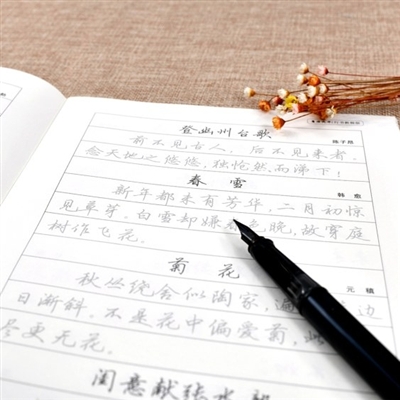 登幽州台歌
陈子昂
前不见古人，后不见来者。
念天地之悠悠，独怆然而涕下！
春雪
韩愈
新年都未有芳华，二月初惊
见草芽。白雪却嫌春色晚，故穿庭
树作飞花。
菊花
元稹
秋丛绕舍似陶家，遍 边
日渐斜。不是花中偏爱菊，此
尽更无花。
闺意献张水部